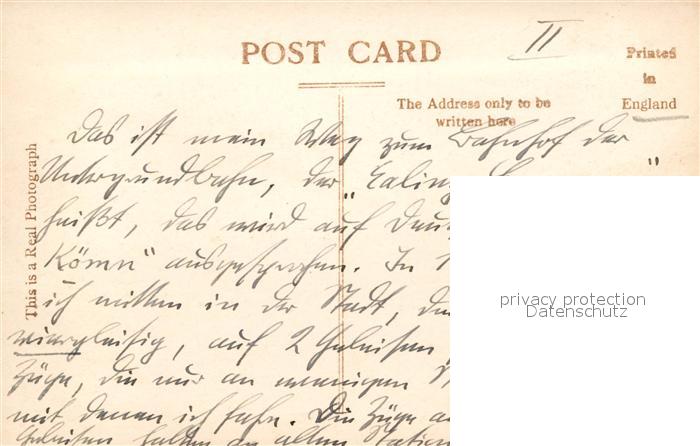 II
POST CARD
Printed
in
England
The Address only to be
written here
This is a Real Photograph
Das ist mein Weg zum Bahnhof der
Untergrundbahn, der „Ealing "
heißt, das wird auf
" ausgesprochen. In
ich mitten in der Stadt,
viergleisig, auf 2 Geleisen
Züge, die nur an wenigen
mit denen ich fahre. Die Züge
Geleisen halten an allen
privacy protection
Datenschutz